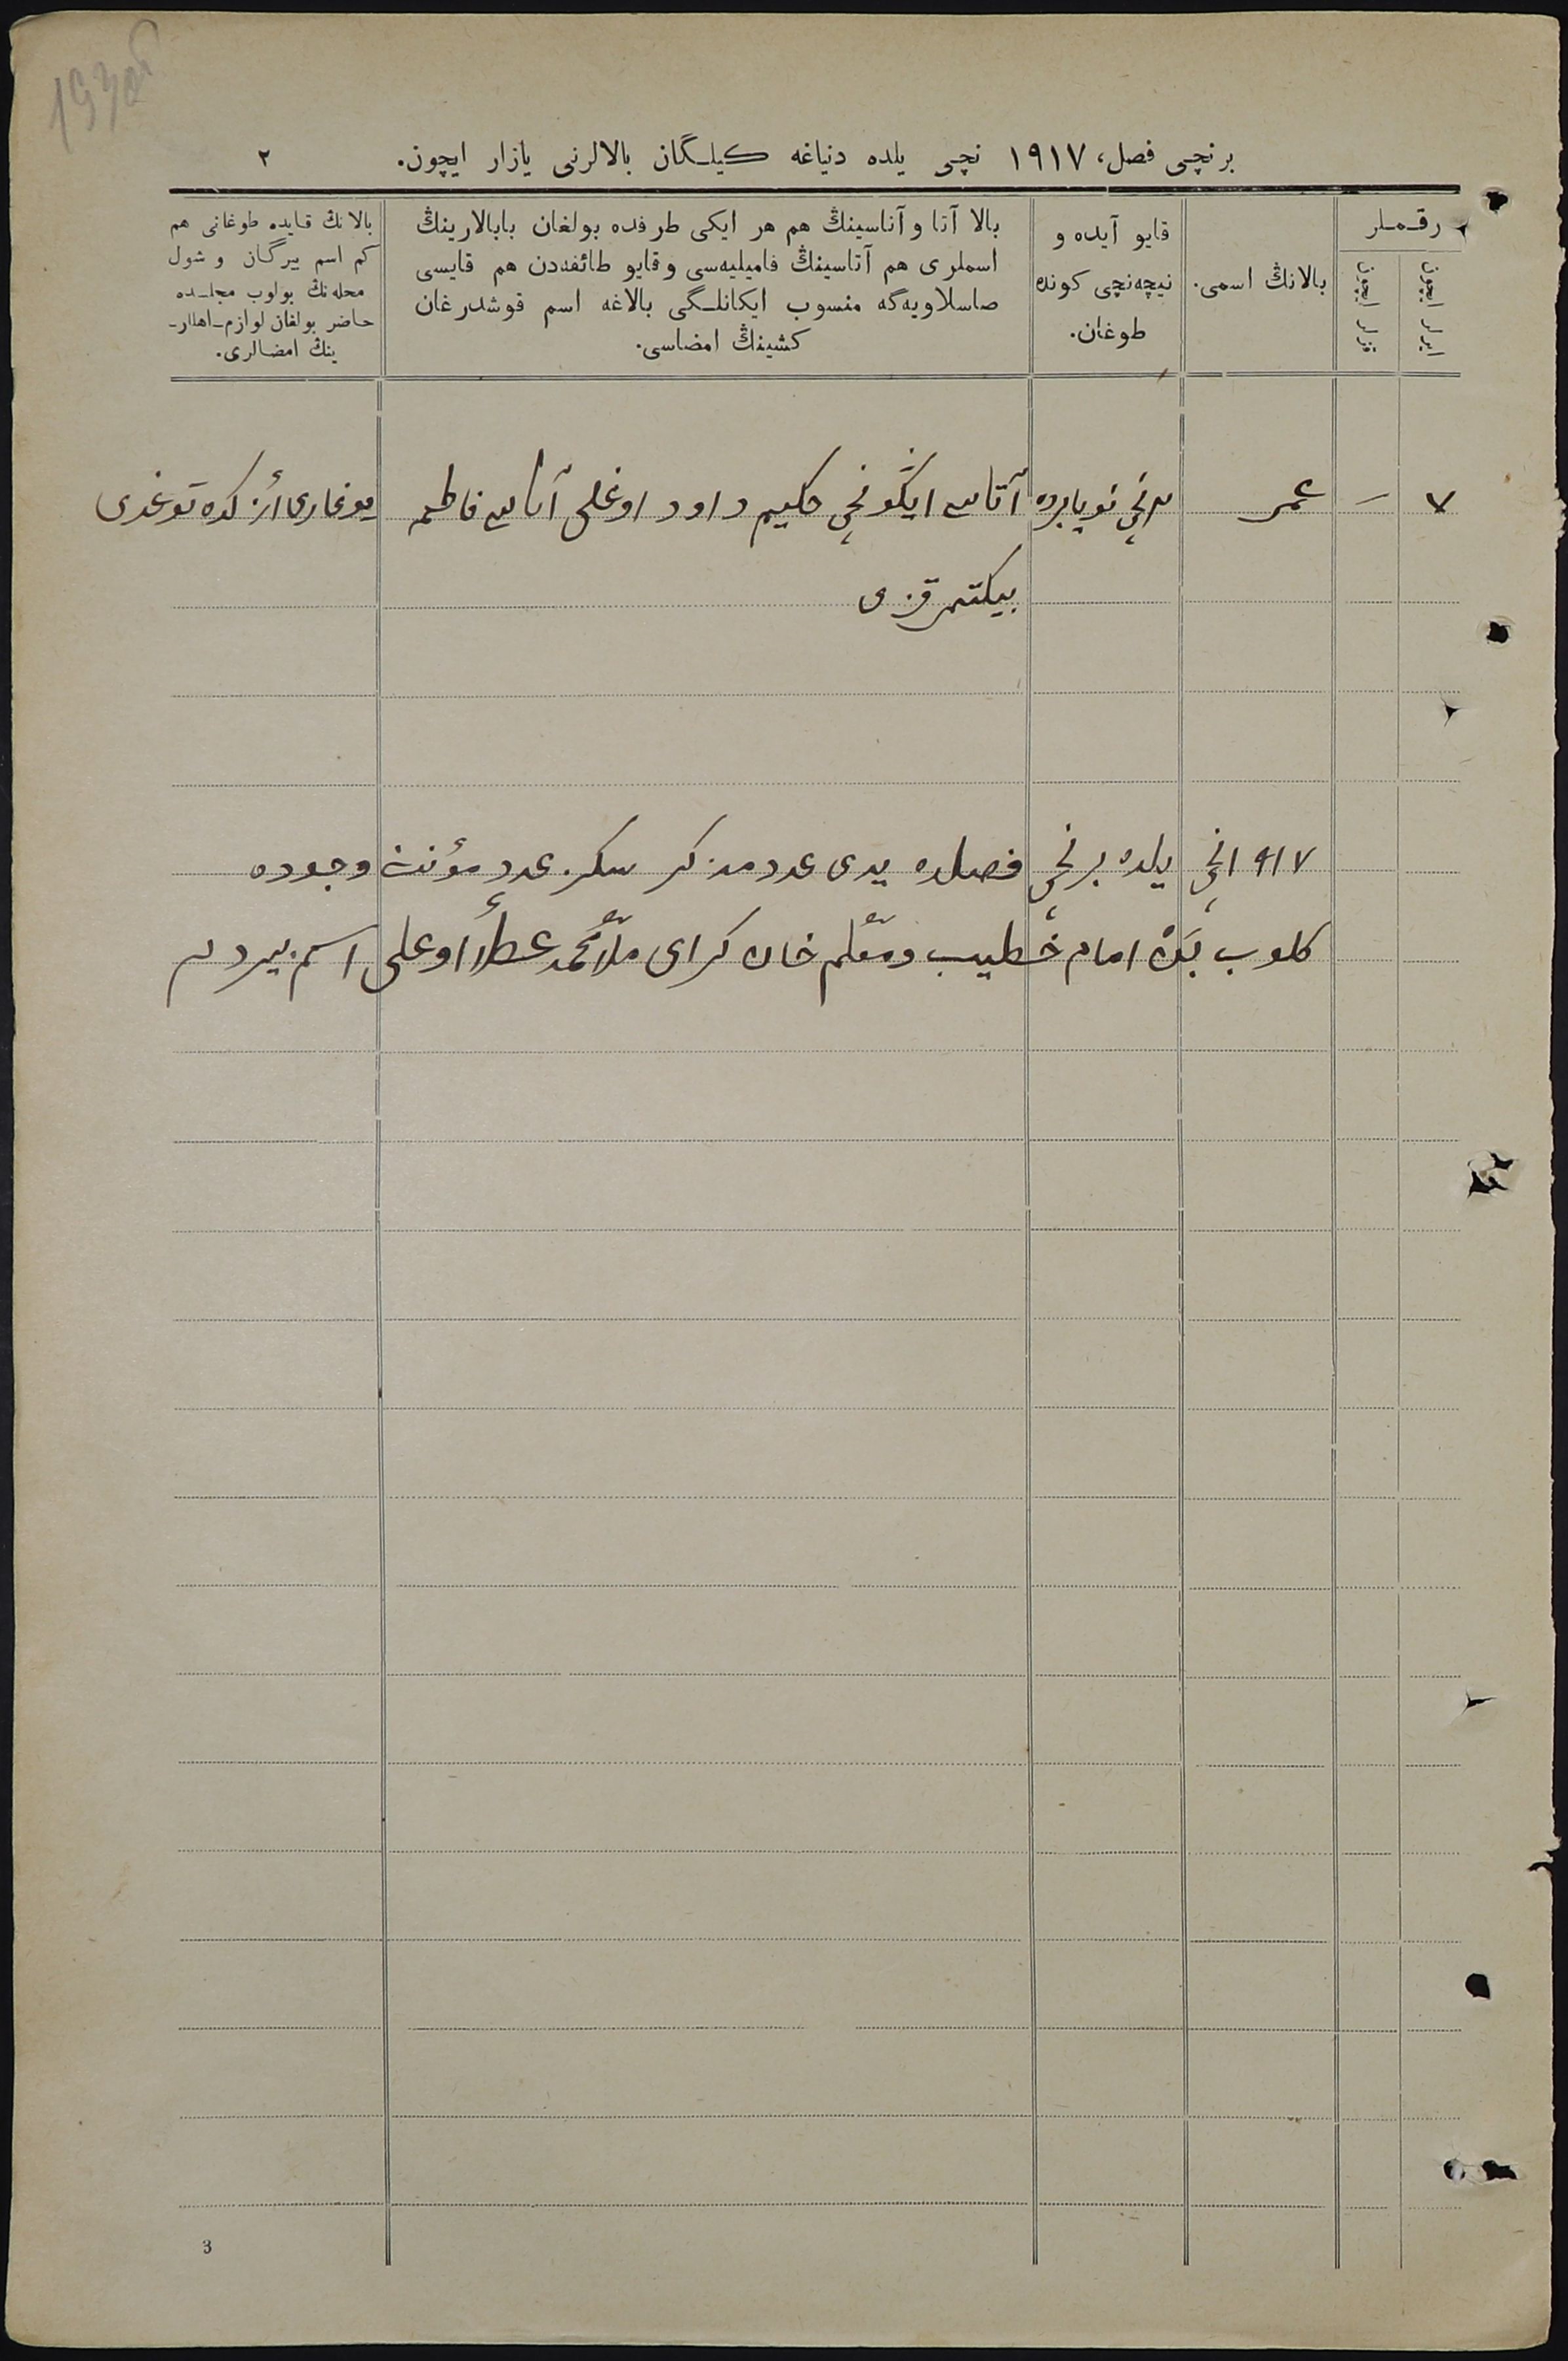 برنچی فصل، ١٩١٧ نچی یلده دنیاغه کیلـگان بالالرنی یازار ایچون.
٢
رقـمـلر
ایرلر ایچون
قزلر ایچون
بالانڭ اسمی.
قایو آیده و
نیچه‌نچی کونده
طوغان.
بالا آتا و آناسینڭ هم هر ایکی طرفده بولغان بابالارینڭ
اسملری هم آتاسینڭ فامیلیه‌سی و قایو طائفه‌دن هم قایسی
صاسلاویه‌گه منسوب ایکانلـگی بالاغه اسم قوشدرغان
کشینڭ امضاسی.
بالانڭ قایده طوغانی هم
کم اسم بیرگان و شول
محله‌نڭ بولوب مجلـسده
حاضر بولغان لوازم اهللر-
ینڭ امضالری.
٧ – عمر نویابرده آتاسی ایگونچی حکیم داود اوغلی آناسی فاطمه یوغاری توغدی
بیکتمر قزی
١٩١٧ نچی یلده برنچی فصلده یدی عدد مذکر سکز عدد مؤنث وجوده
کلوب امام خطیب و معلم خان کرای ملا محمد عطأ اوغلی اسم بیردم
3